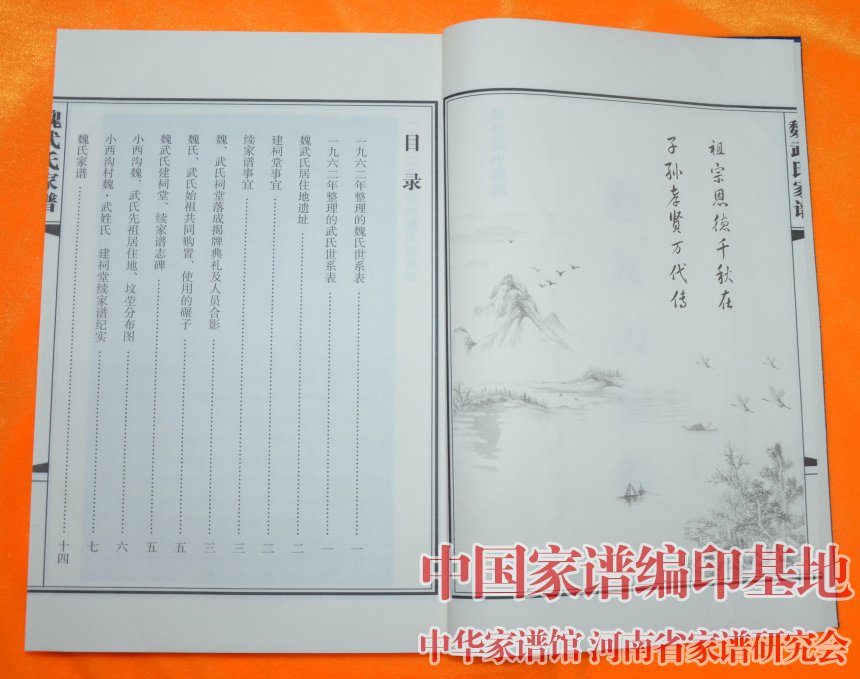 魏武氏家谱
祖宗恩德千秋在
子孙孝贤万代传
目录
一九六二年整理的魏氏世系表 一
一九六二年整理的武氏世系表 一
魏武氏居住地遗址 二
建祠堂事宜 二
续家谱事宜 三
魏、武氏祠堂落成揭牌典礼及人员合影 三
魏氏、武氏始祖共同购置、使用的碾子 五
魏武氏建祠堂、续家谱志碑 五
小西沟魏、武氏先祖居住地、坟茔分布图 六
小西沟村魏·武姓氏 建祠堂续家谱纪实 七
魏氏家谱 十四
魏武氏家谱
中国家谱编印基地
中华家谱馆 河南省家谱研究会